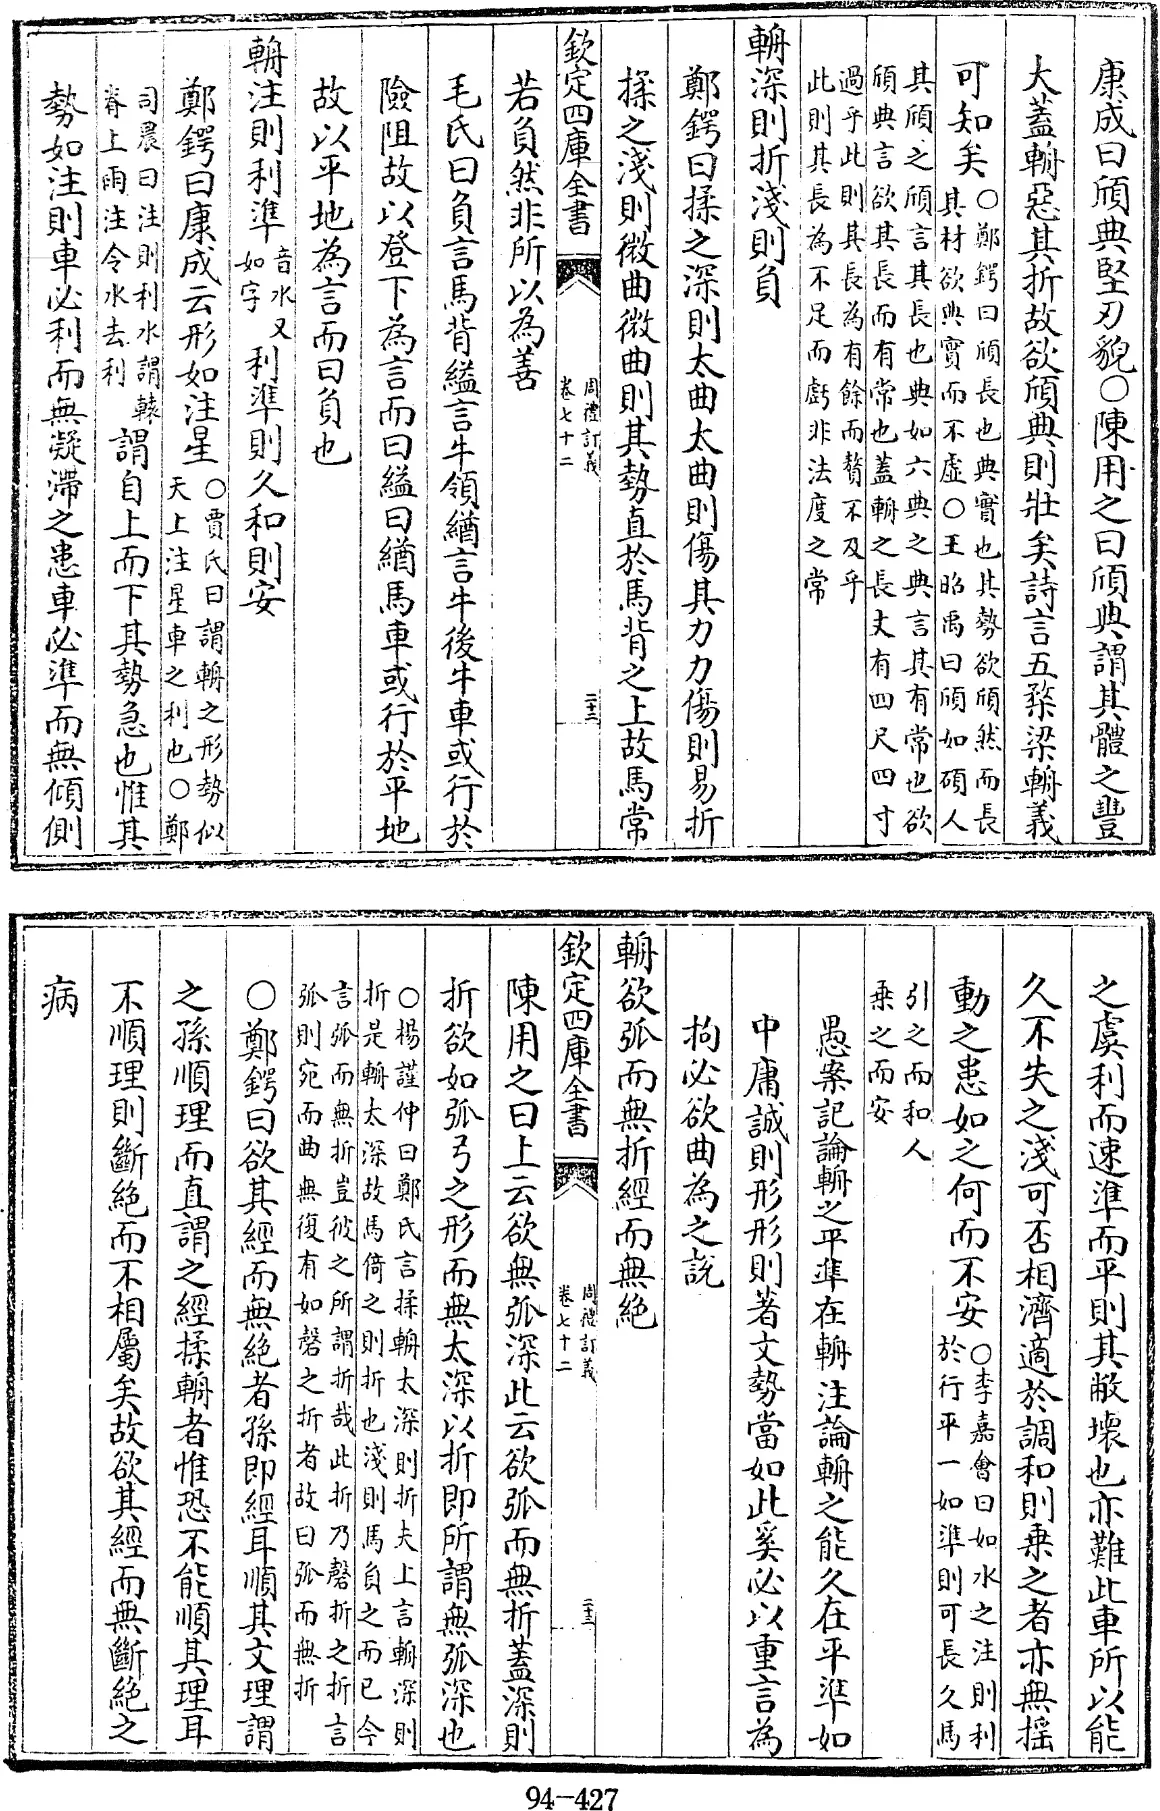 康成曰頎典堅刃貌○陳用之曰頎典謂其體之豐
大蓋輈惡其折故欲頎典則壯矣詩言五楘梁輈義
可知矣
○鄭鍔曰頎長也典實也其勢欲頎然而長
其材欲典實而不虛○王昭禹曰頎如碩人
其頎之頎言其長也典如六典之典言其有常也欲
頎典言欲其長而有常也蓋輈之長丈有四尺四寸
過乎此則其長為有餘而贅不及乎
此則其長為不足而虧非法度之常
輈深則折淺則負
鄭鍔曰揉之深則太曲太曲則傷其力力傷則易折
揉之淺則微曲微曲則其勢直於馬背之上故馬常
欽定四庫全書
周禮訂義
卷七十二
二十三
若負然非所以為善
毛氏曰負言馬背縊言牛領緧言牛後牛車或行於
險阻故以登下為言而曰縊曰緧馬車或行於平地
故以平地為言而曰負也
輈注則利準
音水又
如字
利準則久和則安
鄭鍔曰康成云形如注星
○賈氏曰謂輈之形勢似
天上注星車之利也○鄭
司農曰注則利水謂轅
脊上雨注令水去利
謂自上而下其勢急也惟其
勢如注則車必利而無凝滯之患車必準而無傾側
之虞利而速準而平則其敝壞也亦難此車所以能
久不失之淺可否相濟適於調和則乗之者亦無揺
動之患如之何而不安
○李嘉會曰如水之注則利
於行平一如準則可長久馬
引之而和人
乗之而安
愚案記論輈之平準在輈注論輈之能久在平準如
中庸誠則形形則著文勢當如此奚必以重言為
拘必欲曲為之説
輈欲弧而無折經而無絶
欽定四庫全書
周禮訂義
卷七十二
二十三
陳用之曰上云欲無弧深此云欲弧而無折蓋深則
折欲如弧弓之形而無太深以折即所謂無弧深也
○楊謹仲曰鄭氏言揉輈太深則折夫上言輈深則
折是輈太深故馬倚之則折也淺則馬負之而已今
言弧而無折豈彼之所謂折哉此折乃磬折之折言
弧則宛而曲無復有如磬之折者故曰弧而無折
○鄭鍔曰欲其經而無絶者孫即經耳順其文理謂
之孫順理而直謂之經揉輈者惟恐不能順其理耳
不順理則斷絶而不相屬矣故欲其經而無斷絶之
病
94-427